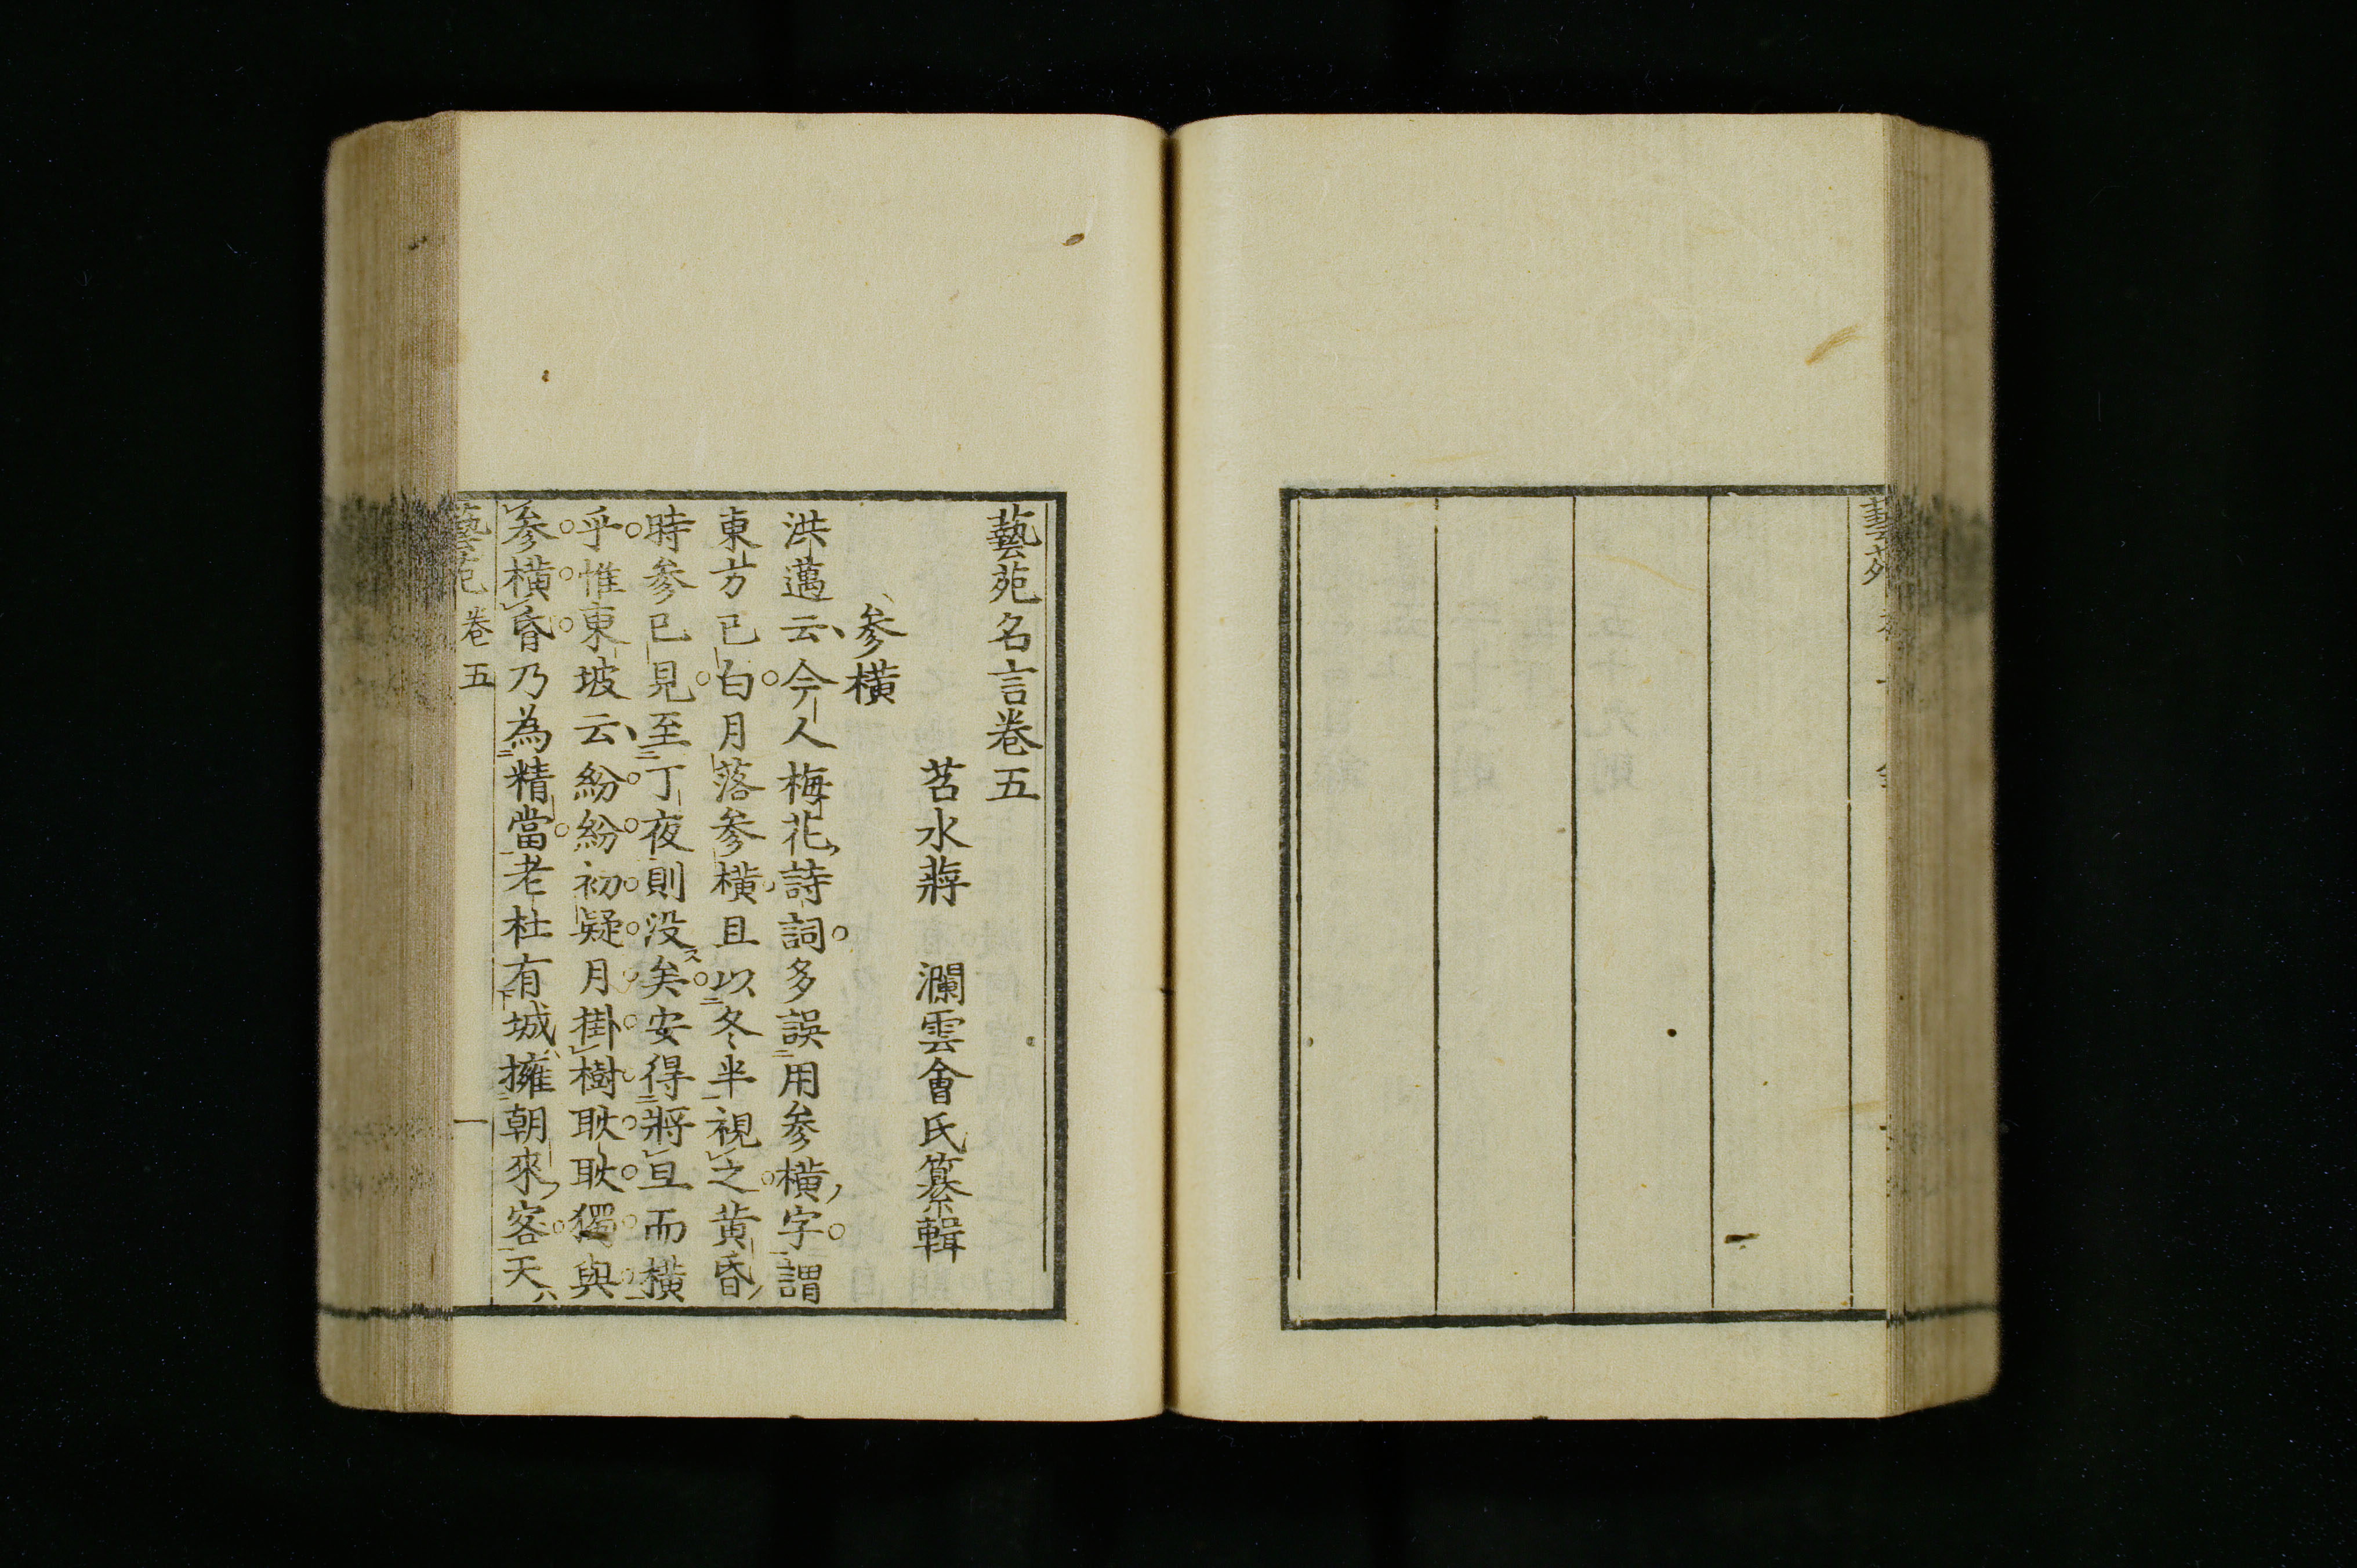 藝苑
藝苑名言卷五
苕水蔣　瀾雲會氏纂輯
參橫
洪邁云今人梅花詩詞多誤用參橫字謂
東方已白月落參橫且以冬半視之黃昏
時參已見至丁夜則没矣安得將亘而橫
乎惟東坡云紛紛初疑月掛樹耿耿獨與
參橫昏乃為精當老杜有城擁朝來客天
藝苑 卷五 一